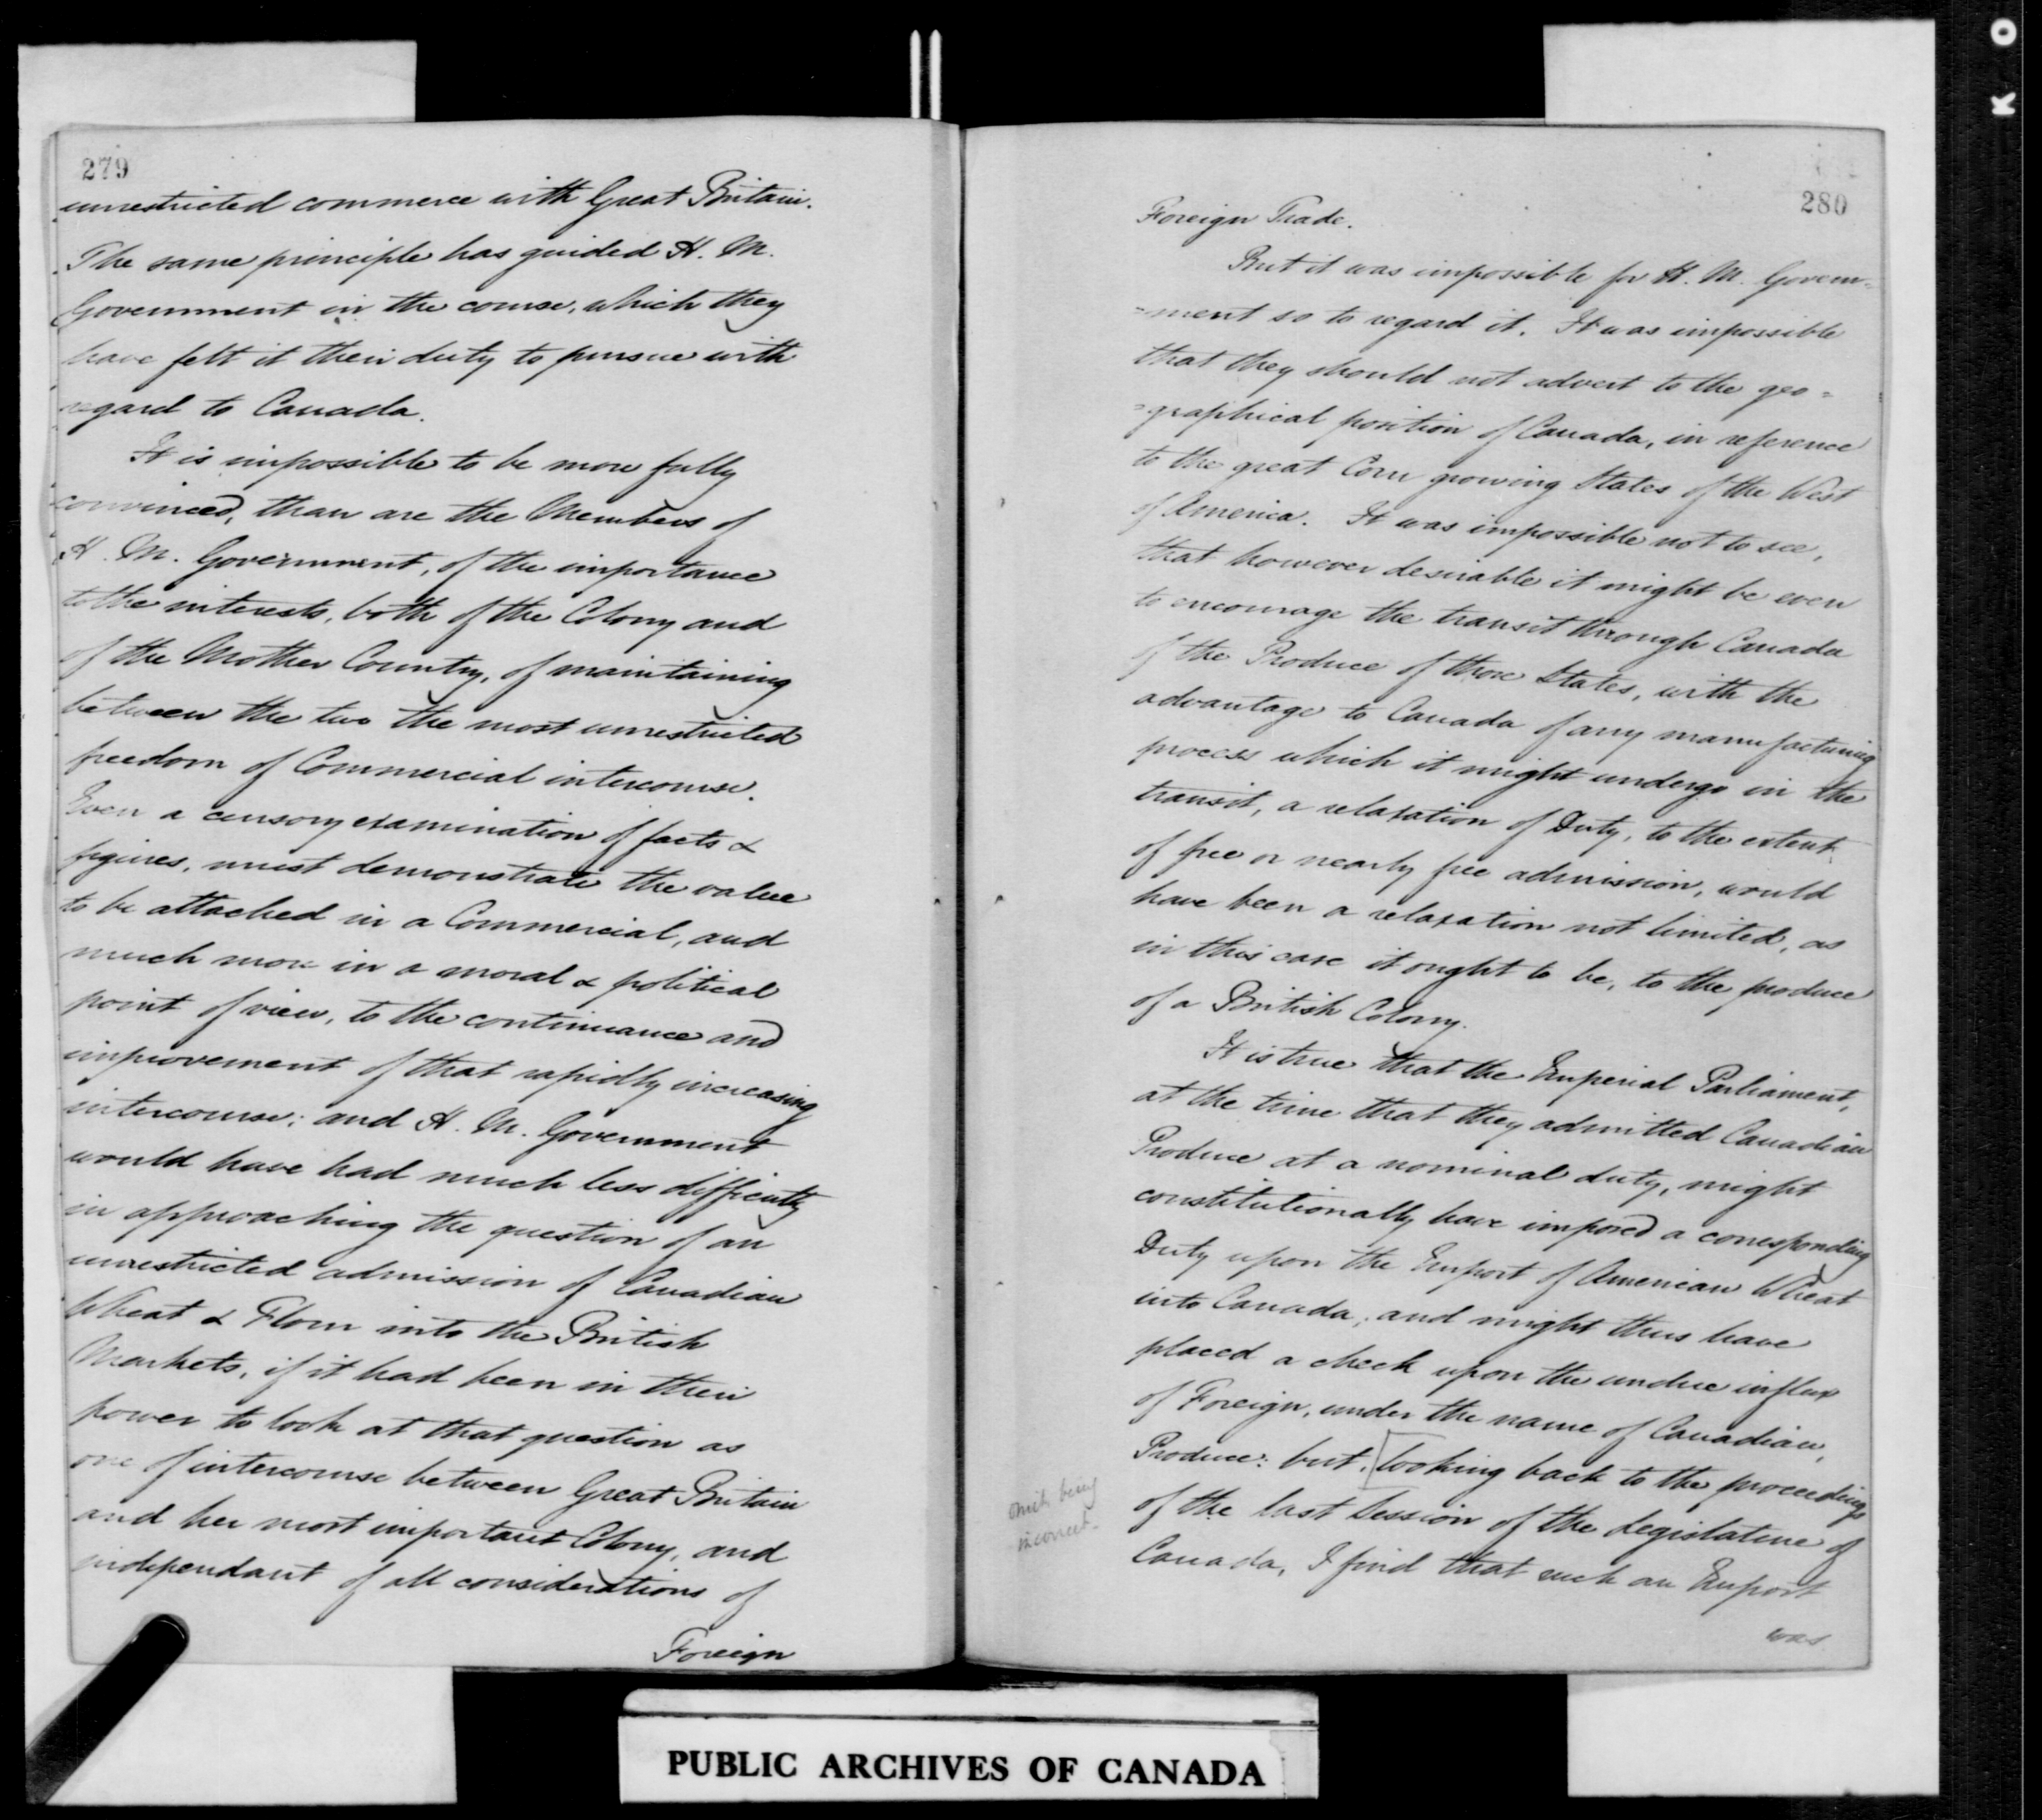 279
unrestricted commerce with Great Britain.
The same principle has guided H. M.
Government in the course, which they
have felt it their duty to pursue with
regard to Canada.
It is impossible to be more fully
convinced, than are the Members of
H. M. Government, of the importance
to the interests, both of the Colony and
of the Mother Country, of maintaining
between the two the most unrestricted
freedom of Commercial intercourse.
Even a cursory examination of facts &
figures, must demonstrate the value
to be attached in a Commercial, and
much more in a moral & political
point of view, to the continuance and
improvement of that rapidly increasing
intercourse; and H. M. Government
would have had much less difficulty
in approaching the question of an
unrestricted admission of Canadian
Wheat & Flour into the British
Markets, if it had been in their
power to look at that question as
one of intercourse between Great Britain
and her most important Colony, and
independant of all considerations of
Foreign
280
Foreign Trade.
But it was impossible for H. M. Govern=
=ment so to regard it. It was impossible
that they should not advert to the geo=
=graphical position of Canada, in reference
to the great Corn growing States of the West
of America. It was impossible not to see,
that however desirable it might be even
to encourage the transit through Canada
of the Produce of those States, with the
advantage to Canada of any manufacturing
process which it might undergo in the
transit, a relaxation of Duty, to the extent
of free or nearly free admission, would
have been a relaxation not limited, as
in this case it ought to be, to the produce
of a British Colony.
It is true that the Imperial Parliament,
at the time that they admitted Canadian
Produce at a nominal duty, might
constitutionally have imposed a corresponding
Duty upon the Import of American Wheat
into Canada, and might thus have
placed a check upon the undue influx
of Foreign, under the name of Canadian,
Produce: but, [looking back to the proceedings
of the last Session of the Legislature of
Canada, I find that such an Import
was
omit being
incorrect.
PUBLIC ARCHIVES OF CANADA
K O